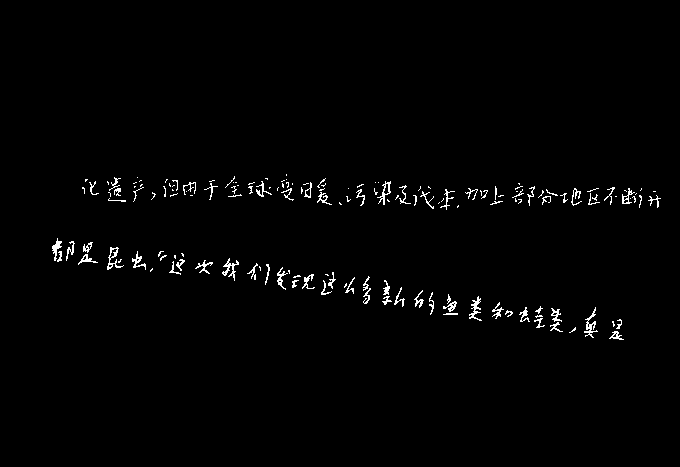 化遗产,但由于全球变暖、污染及伐木,加上部分地区不断开
都是昆虫。“这次我们发现这么多新的鱼类和蛙类,真是